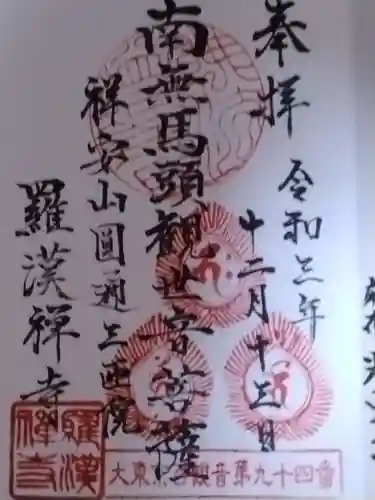 奉拝
令和三年
十二月十三日
南無馬頭観世音菩薩
祥安山圓通三匝院
羅漢禅寺
羅漢禅寺
音第九十四番